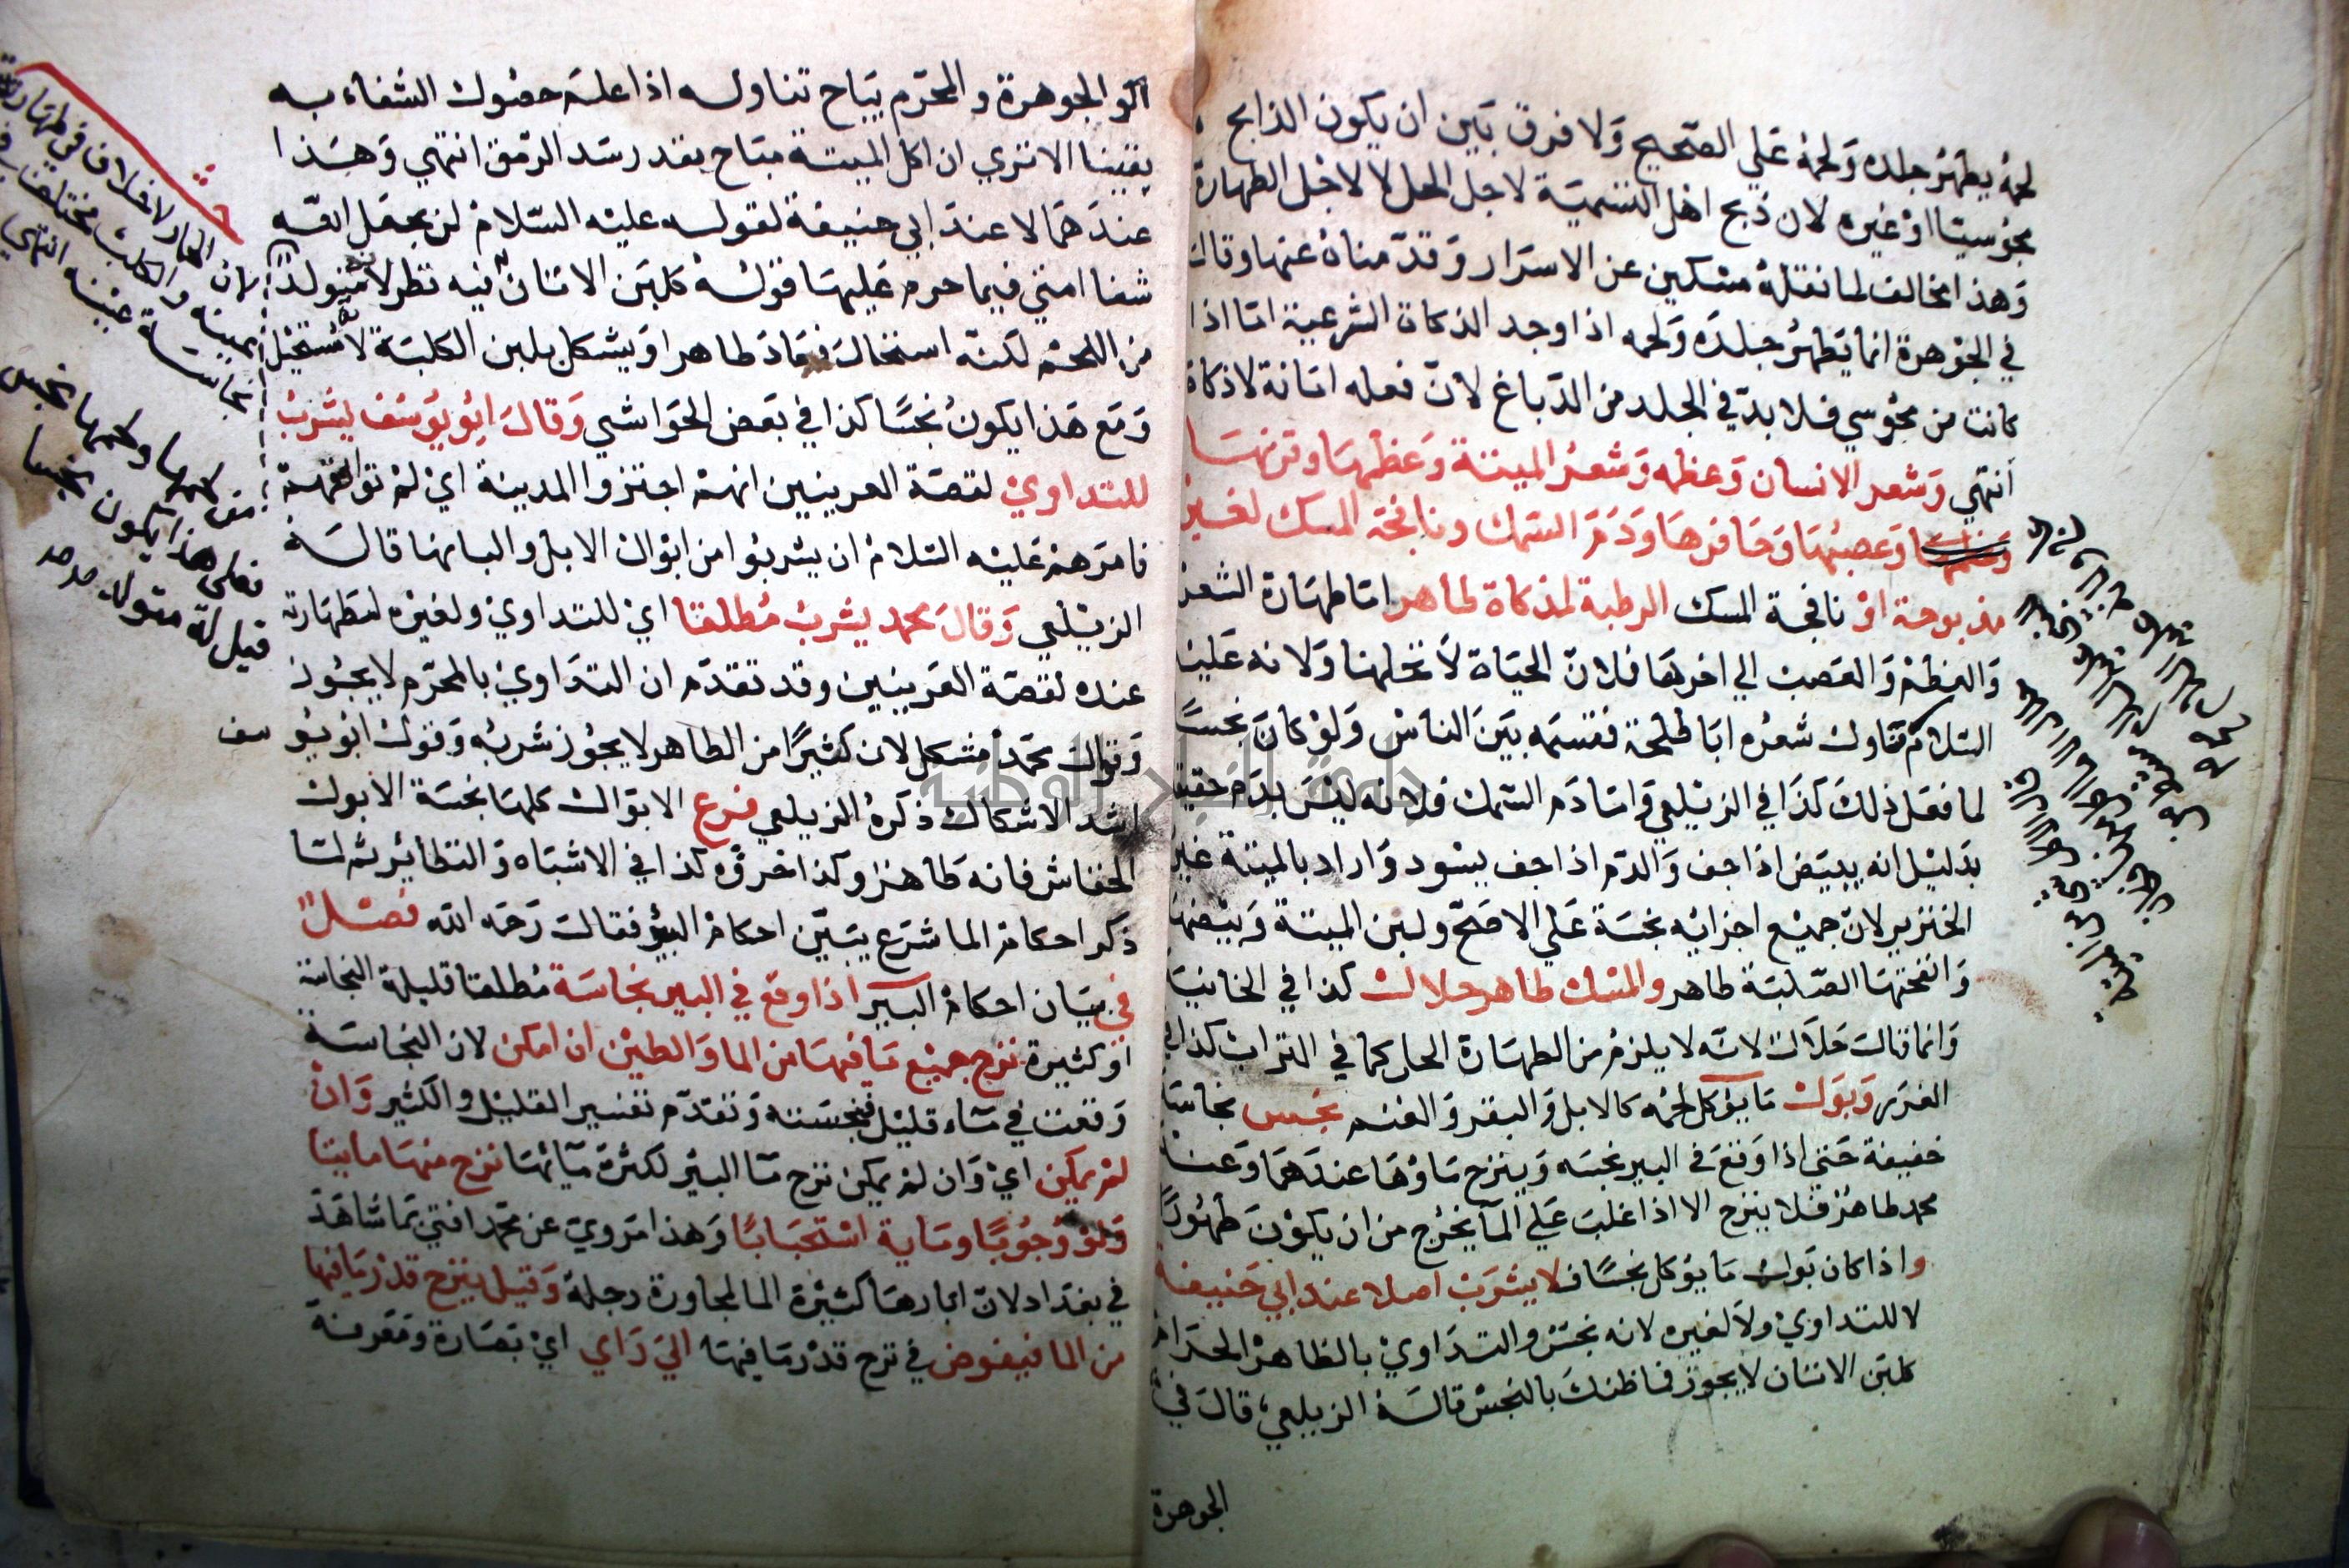 لحمه يطهر جلده ولحمه علي الصحيح ولا فرق بين ان يكون الذابح
مجوسيا او غيره لان ذبح اهل التسمية لاجل الحل لا لاجل الطهارة
وهذا مخالف لما نقله مسكين عن الاسرار وقدمناه عنها وقال
في الجوهرة انما يطهر جلده ولحمه اذا وجد الذكاة الشرعية اما اذا
كانت من مجوسي فلا بد في الجلد من الدباغ لان فعله اماتة لا ذكاة
انتهي وشعر الانسان وعظمه وشعر الميتة وعظمها وقرنها
وعصبها وحافرها ودم السمك ونافجة المسك لغير
مذبوحة او نافجة المسك الرطبة لمذكاة طاهر اما طهارة الشعر
والعظم والعصب الي اخرها فلان الحياة لا تحلها ولانه عليه
السلام ناول شعره ابا طلحة فقسمه بين الناس ولو كان نجسا
لما فعل ذلك كذا في الزيلعي واما دم السمك فلانه ليس بدم حقيقة
بدليل انه يبيض اذا جف والدم اذا جف يسود واراد بالميتة غير
الخنزير لان جميع اجزائه نجسة علي الاصح ولبن الميتة وبيضها
وانفحتها الصلبة طاهر والمسك طاهر حلال كذا في الخانية
وانما قال حلال لانه لا يلزم من الطهارة الحل كما في التراب كذا في
الغرر وبول ما يؤكل لحمه كالابل والبقر والغنم نجس نجاسة
خفيفة حتي اذا وقع في البير نجسه وينزح ماؤها عندهما وعند
محمد طاهر فلا ينزح الا اذا غلب علي الما يخرج من ان يكون طهورا
واذا كان بول ما يؤكل نجسا فلا يشرب اصلا عند ابي حنيفة
لا للتداوي ولا لغيره لانه نجس والتداوي بالطاهر الحرام
كلبن الاتان لا يجوز فما ظنك بالنجس قاله الزيلعي، قال في
الجوهرة
الجوهرة والمحرم يباح تناوله اذا علم حصول الشفاء به
يقينا الا تري ان اكل الميتة مباح بقدر سد الرمق انتهي وهذا
عندهما لا عند ابي حنيفة لقوله عليه السلام لن يجعل الله
شفا امتي فيما حرم عليها قوله كلبن الاتان فيه نظر لا متولد
من اللحم لكنه استحال فعاد طاهرا ويشكل بلبن الكلبة لا مستحيل
ومع هذا يكون نجسا كذا في بعض الحواشي وقال ابو يوسف يشرب
للتداوي لقصة العرنيين انهم اجتزوا المدينة اي لم توافقهم
فامرهم عليه السلام ان يشربوا من ابوال الابل والبانها قاله
الزيلعي وقال محمد يشرب مطلقا اي للتداوي ولغيره لطهارته
عنده لقصة العرنيين وقد تقدم ان التداوي بالمحرم لا يجوز
وقول محمد مشكل لان كثيرا من الطاهر لا يجوز شربه وقول ابو يوسف
اشد الاشكال ذكره الزيلعي فرع الابوال كلها نجسة الا بول
الخفاش فانه طاهر وكذا خرؤه كذا في الاشباه والنظائر ثم لما
ذكر احكام الما شرع يبين احكام البير فقال رحمه الله فصل
في بيان احكام البير اذا وقع في البير نجاسة مطلقا قليلة النجاسة
او كثيرة نزح جميع ما فيها من الما والطين ان امكن لان النجاسة
وقعت في ماء قليل فنجسته وتقدم تفسير القليل والكثير وان
لم يمكن اي وان لم يمكن نزح ما البير لكثرة مائها نزح منها مايتا
دلو وجوبا وماية استحبابا وهذا مروي عن محمد افتي بما شاهد
في بغداد لان ابارها كثيرة الما لمجاورة دجلة وقيل ينزح قدر ما فيها
من الما فيفوض في نزح قدر ما فيها الي راي اي بصارة ومعرفة